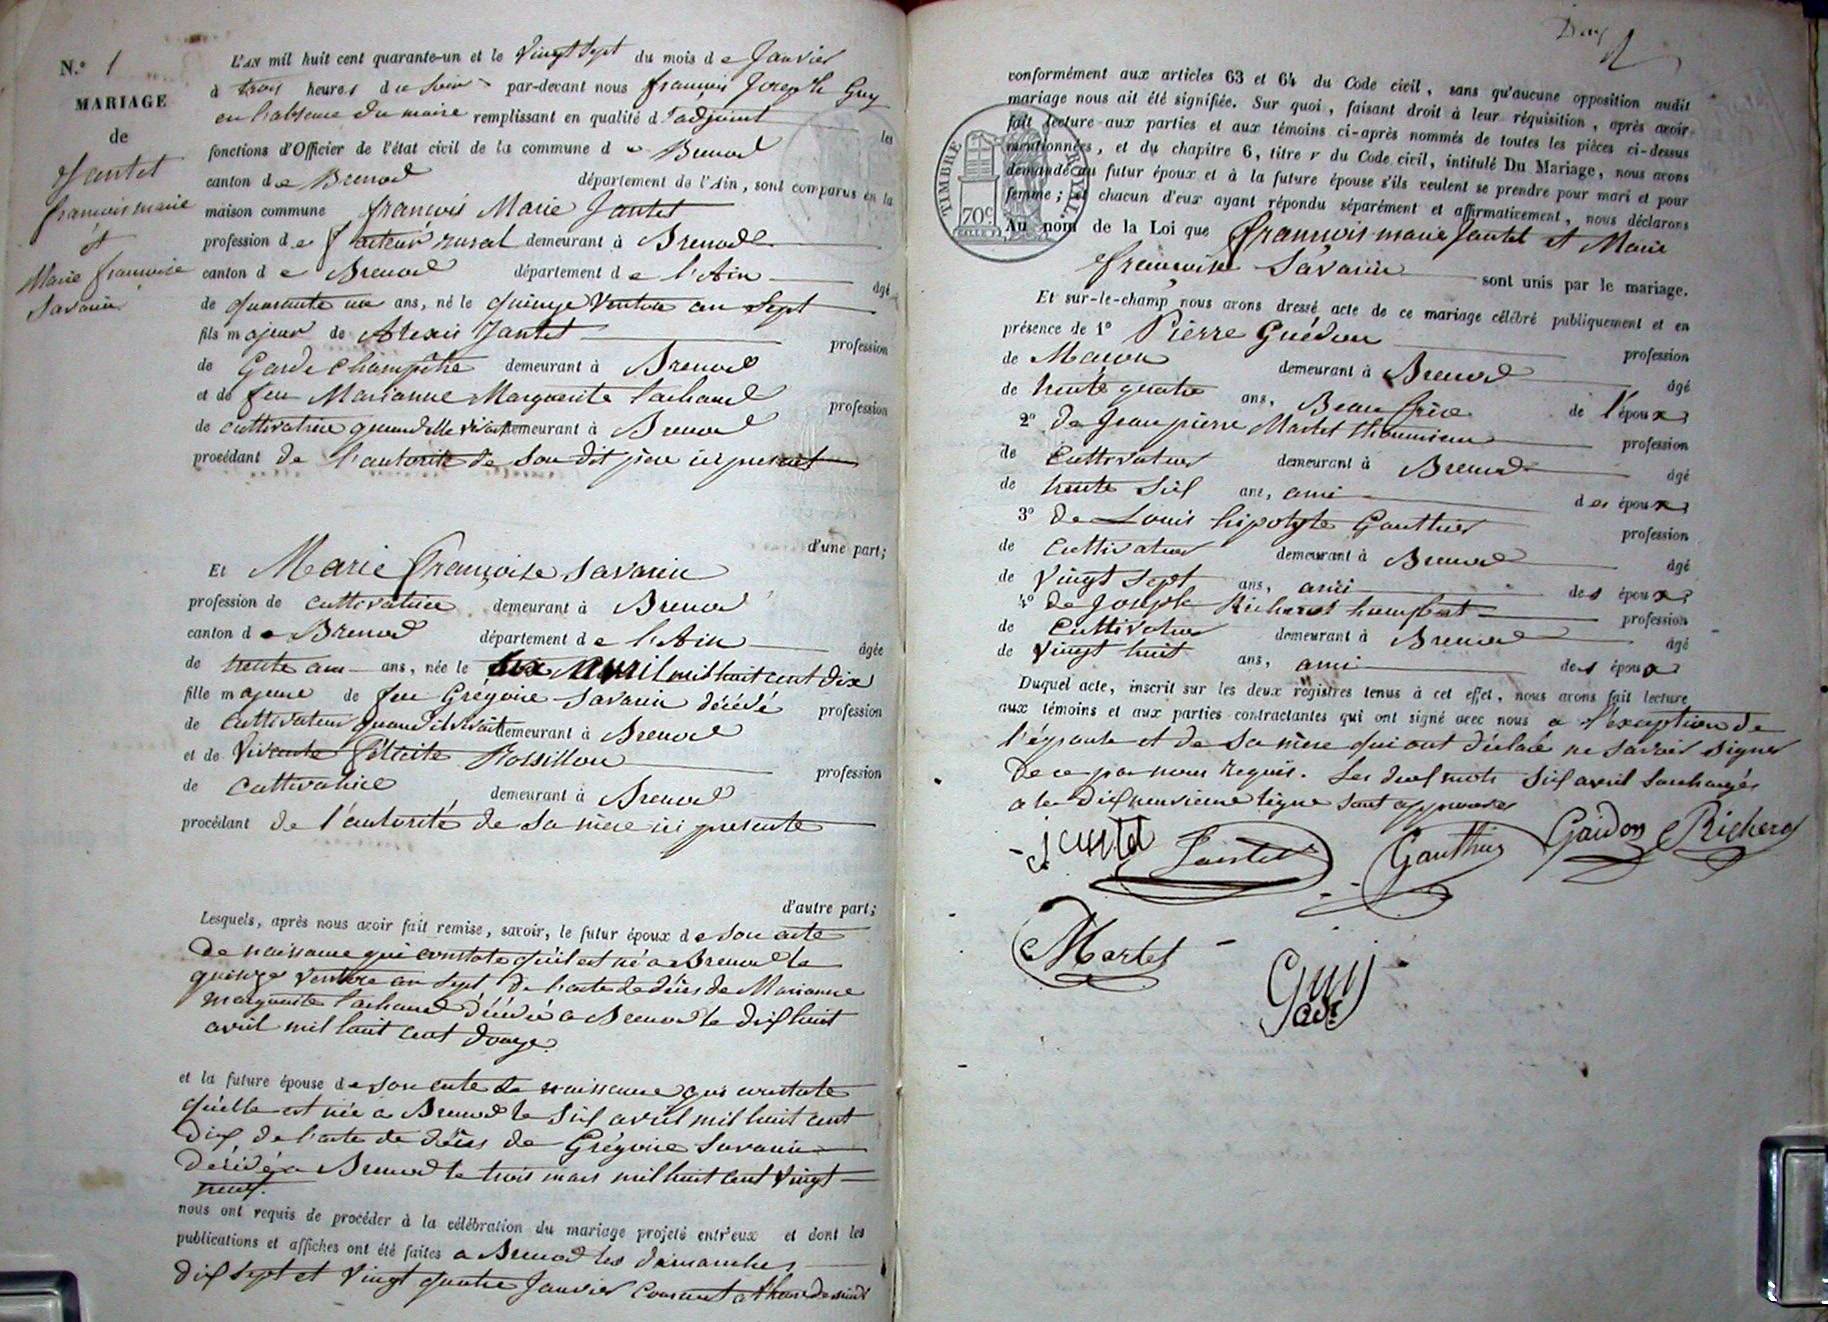 N.° 1
MARIAGE
de
Jantet
francois marie
et
Marie françoise
Savarin
L'AN mil huit cent quarante-un et le vingt sept du mois de Janvier
à trois heures du soir par-devant nous françois Joseph Guy
en l'absence du maire remplissant en qualité d'adjoint les
fonctions d'Officier de l'état civil de la commune de Brenod
canton de Brenod département de l'Ain, sont comparus en la
maison commune françois Marie Jantet
profession de facteur rural demeurant à Brenod
canton de Brenod département de l'Ain âgé
de quarante un ans, né le quinze Ventose an Sept
fils majeur de Alexis Jantet profession
de Garde champêtre demeurant à Brenod
et de feu Marianne Marguerite Pachoud profession
de cultivatrice quand elle vivait demeurant à Brenod
procédant de l'autorité de son dit père ici present
d'une part;
Et Marie françoise Savarin
profession de cultivatrice demeurant à Brenod
canton de Brenod département de l'Ain âgée
de trente ans, née le six avril mil huit cent dix
fille majeure de feu Grégoire Savarin décédé profession
de cultivateur quand il vivait demeurant à Brenod
et de Vivante félicité Rossillon profession
de cultivatrice demeurant à Brenod
procédant de l'autorité de sa mère ici presente
d'autre part;
Lesquels, après nous avoir fait remise, savoir, le futur époux de son acte
de naissance qui constate qu'il est né a Brenod le
quinze ventose an sept de l'acte de décès de Marianne
marguerite Pachoud décédée a Brenod le dix huit
avril mil huit cent douze.
et la future épouse de son acte de naissance qui constate
qu'elle est née a Brenod le six avril mil huit cent
dix, de l'acte de décès de Grégoire Savarin
décédé a Brenod le trois mars mil huit cent vingt
neuf.
nous ont requis de procéder à la célébration du mariage projeté entr'eux et dont les
publications et affiches ont été faites a Brenod les dimanches
dix sept et vingt quatre Janvier courant a l'heure de midi
conformément aux articles 63 et 64 du Code civil, sans qu'aucune opposition audit
mariage nous ait été signifiée. Sur quoi, faisant droit à leur réquisition, après avoir
fait lecture aux parties et aux témoins ci-après nommés de toutes les pièces ci-dessus
mentionnées, et du chapitre 6, titre v du Code civil, intitulé Du Mariage, nous avons
demandé au futur époux et à la future épouse s'ils veulent se prendre pour mari et pour
femme; et chacun d'eux ayant répondu séparément et affirmativement, nous déclarons
Au nom de la Loi que françois marie Jantet et Marie
françoise Savarin sont unis par le mariage.
TIMBRE ROYAL.
70c
Et sur-le-champ nous avons dressé acte de ce mariage célébré publiquement et en
présence de 1° Pierre Guédon profession
de Macon demeurant à Brenod âgé
de trente quatre ans, Beau frère de l'époux
2° de Jean pierre Martet profession
de cultivateur demeurant à Brenod âgé
de trente six ans, ami des époux
3° de Louis hipolyte Gauthier profession
de cultivateur demeurant à Brenod âgé
de vingt sept ans, ami des époux
4° de Joseph Richerot humbert profession
de cultivateur demeurant à Brenod âgé
de vingt huit ans, ami des époux
Duquel acte, inscrit sur les deux registres tenus à cet effet, nous avons fait lecture
aux témoins et aux parties contractantes qui ont signé avec nous a l'exception de
l'épouse et de sa mère qui ont déclaré ne savoir signer
de ce par nous requis. Les deux mots six avril surchargés
a la dix neuvieme ligne sont approuvés
jantet Jantet Gauthier Gaidon Richerot
Martet
Guy
adt